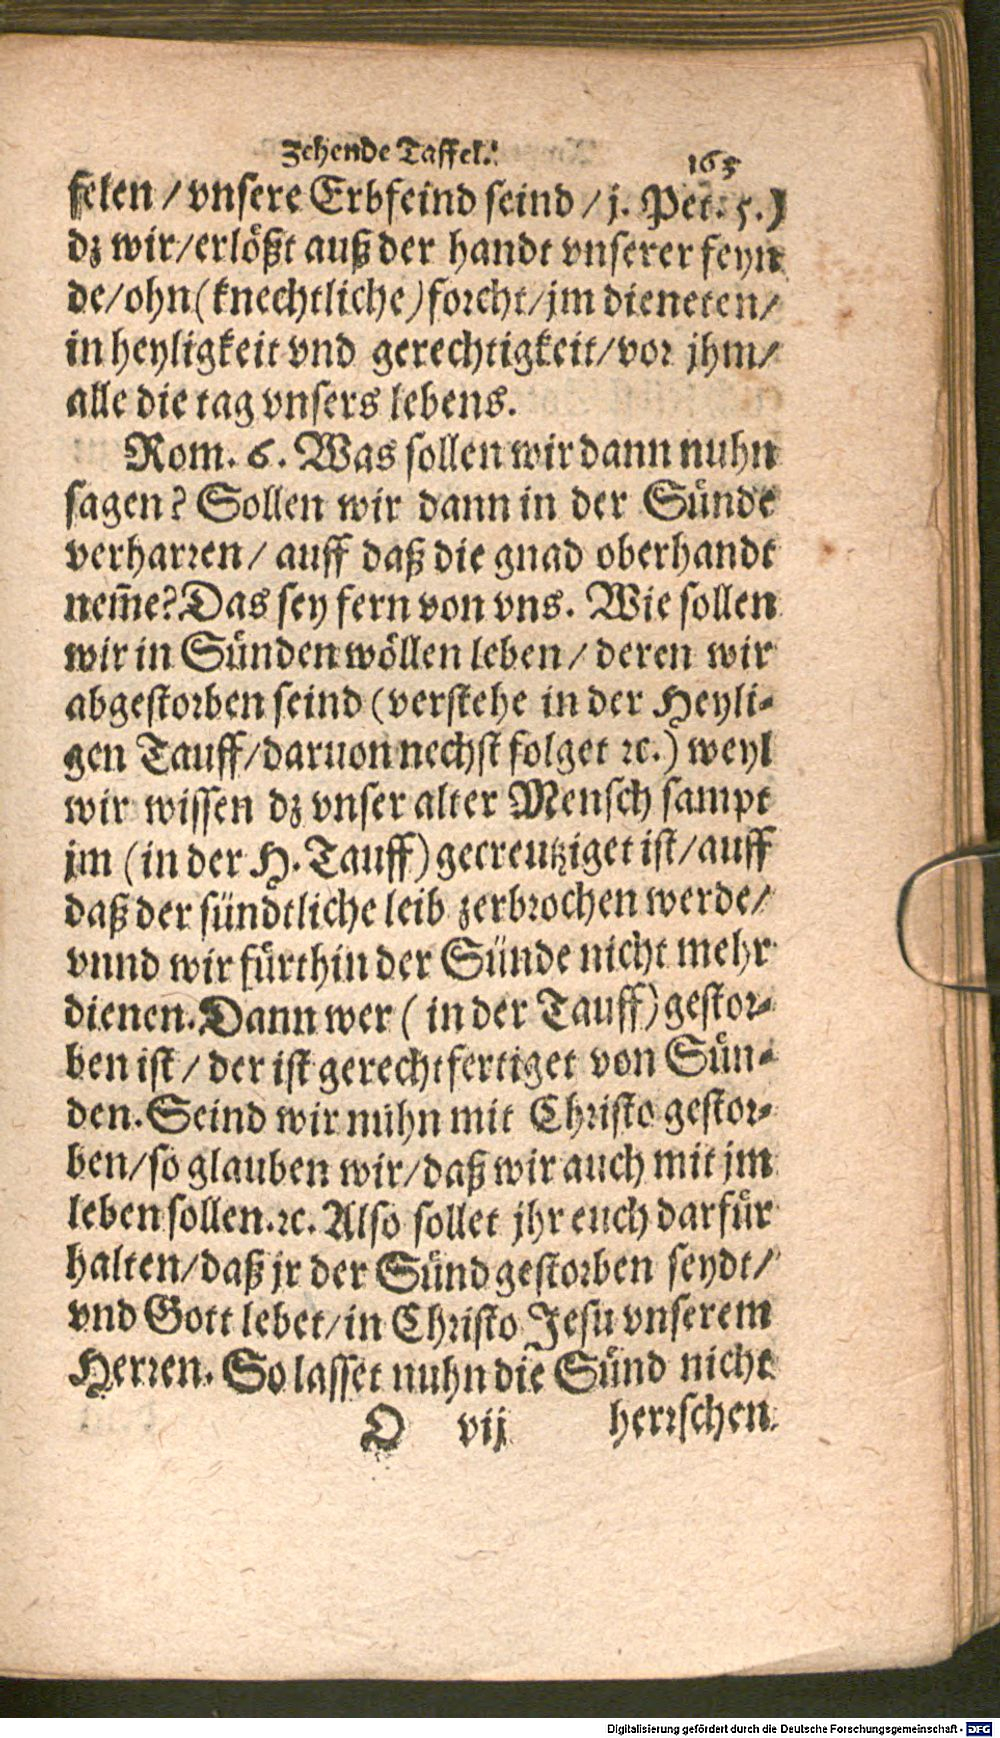 Zehende Taffel.
165
felen / vnsere Erbfeind seind / j. Pet. 5.)
dz wir/erlößt auß der handt vnserer feyn
de/ohn (knechtliche) forcht/jm dieneten/
in heyligkeit vnd gerechtigkeit/vor jhm/
alle die tag vnsers lebens.
Rom. 6. Was sollen wir dann nuhn
sagen? Sollen wir dann in der Sünde
verharren/ auff daß die gnad oberhandt
nem̄e? Das sey fern von vns. Wie sollen
wir in Sünden wöllen leben/ deren wir
abgestorben seind (verstehe in der Heyli-
gen Tauff/daruon nechst folget ꝛc.) weyl
wir wissen dz vnser alter Mensch sampt
jm (in der H. Tauff) gecreutziget ist/auff
daß der sündtliche leib zerbrochen werde/
vnnd wir fürthin der Sünde nicht mehr
dienen. Dann wer ( in der Tauff) gestor-
ben ist/ der ist gerechtfertiget von Sün-
den. Seind wir nuhn mit Christo gestor-
ben/so glauben wir/daß wir auch mit jm
leben sollen.ꝛc. Also sollet jhr euch darfür
halten/daß jr der Sünd gestorben seydt/
vnd Gott lebet/in Christo Jesu vnserem
Herren. So lasset nuhn die Sünd nicht
O vij herrschen
Digitalisierung gefördert durch die Deutsche Forschungsgemeinschaft - DFG